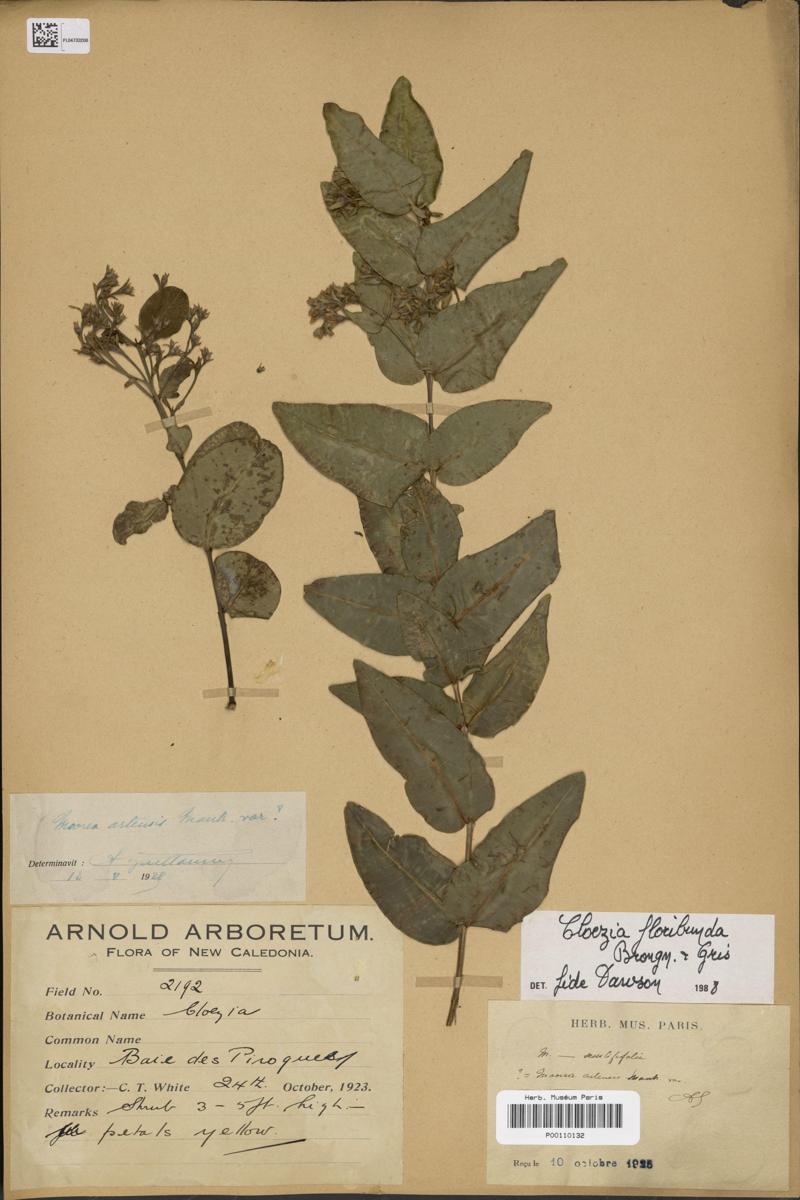 Moorea artensis Montr. var?
Determinavit : A Guillaumin
12 8 1928
ARNOLD ARBORETUM.
FLORA OF NEW CALEDONIA.
Field No. 2192
Botanical Name Cloezia
Common Name
Locality Baie des Piroques
Collector:—C. T. White 24th October, 1923.
Remarks Shrub 3 - 5 ft. high —
petals yellow.
Cloezia floribunda
Brongn. & Gris
DET. fide Dawson 1988
HERB. MUS. PARIS.
M. —
? = Moorea artensis Montr. var.
Herb. Muséum Paris
P00110132
Reçu le 10 octobre 1925